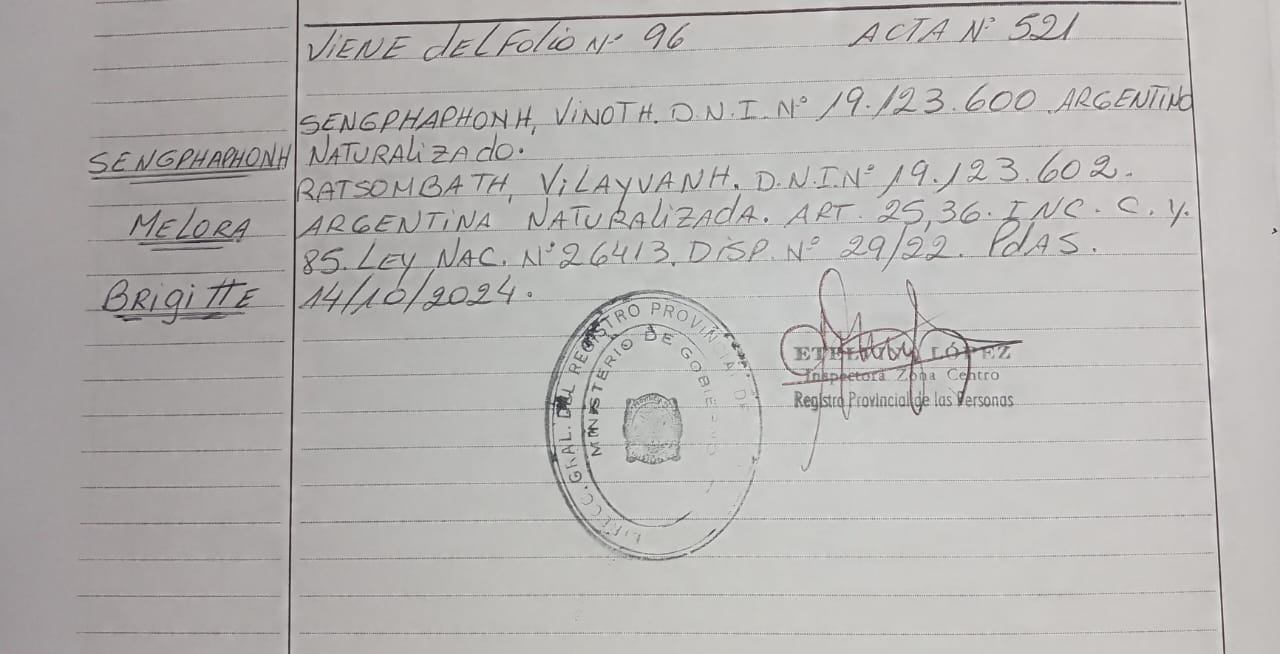 VIENE dEL FOLIO Nº 96 ACTA Nº 521
SENGPHAPHONH, VINOTH. D.N.I. Nº 19.123.600. ARGENTINO
SENGPHAPHONH
NATURALIZADO.
RATSOMBATH, VILAYVANH. D.N.I. Nº 19.123.602.
MELORA
ARGENTINA NATURALIZADA. ART. 25,36. INC. C. Y.
85. LEY NAC. Nº 26413. DISP. Nº 29/22. PdAS.
BRIGITTE
14/10/2024.
DEL REGISTRO PROVINCIAL DE
MINISTERIO DE GOBIERNO
LÓPEZ
Inspectora Zona Centro
Registro Provincial de las Personas